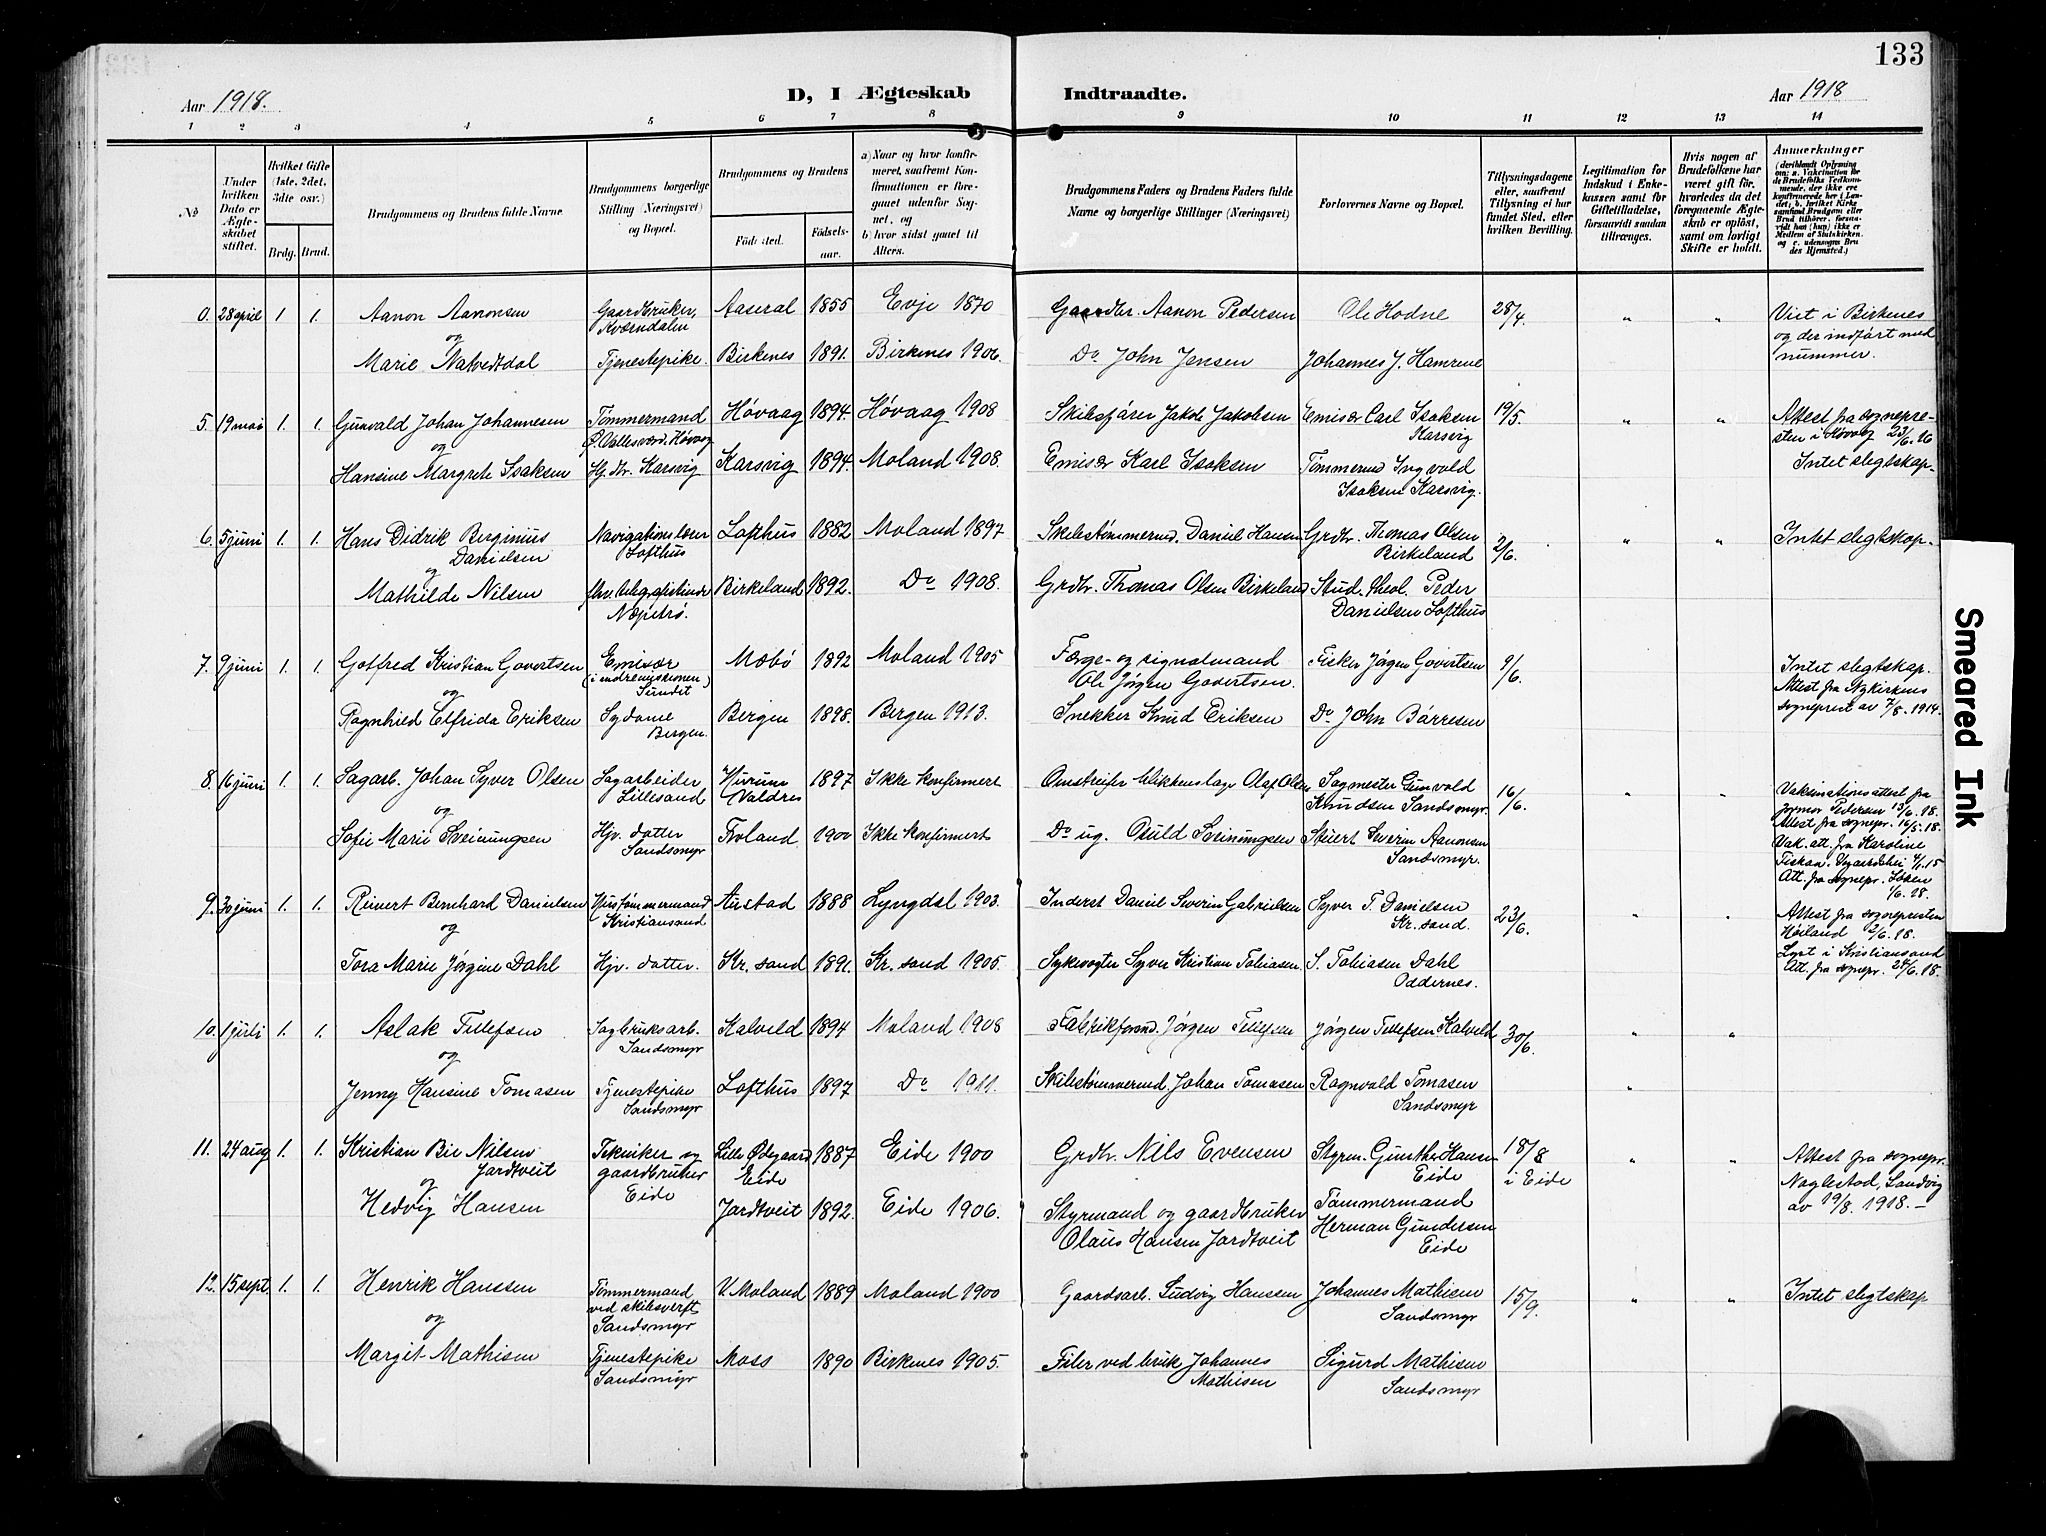 133
Aar 1918.
D, I Ægteskab Indtraadte.
Aar 1918
1 2 3 4 5 6 7 8 9 10 11 12 13 14
No
Under hvilken Dato er Ægteskabet stiftet.
Hvilket Gifte (1ste, 2det, 3die osv.)
Brdg. Brud.
Brudgommens og Brudens fulde Navne.
Brudgommens borgerlige Stilling (Næringsvei) og Bopæl.
Brudgommens og Brudens
Fødested.
Fødsels-aar.
a) Naar og hvor konfirmeret, saafremt Konfirmationen er foregaaet udenfor Sognet, og
b) hvor sidst gaaet til Alters.
Brudgommens Faders og Brudens Faders fulde Navne og borgerlige Stillinger (Næringsvei)
Forlovernes Navne og Bopæl.
Tillysningsdagene eller, saafremt Tillysning ei har fundet Sted, efter hvilken Bevilling.
Legitimation for Indskud i Enkekassen samt for Giftetilladelse, forsaavidt saadan tiltrænges.
Hvis nogen af Brudefolkene har været gift før, hvorledes da det foregaaende Ægteskab er opløst, samt om lovligt Skifte er holdt.
Anmærkninger
(deriblandt Oplysning om: a. Vakcination for de Brudefolks Vedkommende, der ikke ere konfirmerede her i Landet; b. hvilket Kirkesamfund Brudgom eller Brud tilhører, forsaavidt han (hun) ikke er Medlem af Statskirken, og c. udensogns Brudes Hjemsted.)
0. 28 april 1 1. Aanon Aanonsen Gaardbruker, Kværndalen Aaseral 1855 Evje 1870 Gaardbr. Aanon Pedersen Ole Hodne 28/4 " " Viet i Birkenes
og
og der indført med
Marie Natvedtdal Tjenestepike. Birkenes 1891. Birkenes 1906. Do John Jensen Johannes J. Hamrene
nummer.
5. 19 mai 1. 1. Gunvald Johan Johannesen Tømmermand Høvaag 1894. Høvaag 1908 Skibsfører Jakob Jakobsen Emisær Carl Isaksen 19/5. " " Attest fra sognepre-
og Ø. Vallesverd. Høvaag Karsvig sten i Høvaag 23/6. 16
Hansine Margrete Isaksen Hj. dtr. Karsvig Karsvig 1894. Moland 1908. Emisær Karl Isaksen Tømmermd Ingvald Intet slegtskap.
Isaksen Karsvig.
6. 5 juni 1. 1. Hans Didrik Berginius Navigationslærer Lofthus 1882 Moland 1897 Skibstømmermd. Daniel Hansen Grdbr. Thomas Olsen 2/6. " " Intet slegtskap.
Danielsen Lofthus Birkeland
og
Mathilde Nilsen fhv. telegrafistinde Birkeland 1892. Do 1908. Grdbr. Thomas Olsen Birkeland Stud. theol. Peder
Næpstrø. Danielsen Lofthus
7. 9 juni 1. 1. Gotfred Kristian Govertsen Emisær Mæbø 1892 Moland 1905 Færge- og signalmand Fisker Jørgen Govertsen 9/6. Intet slegtskap.
og (i indremisionen) Sundet Ole Jørgen Govertsen. Attest fra Nykirkens
Ragnhild Elfrida Eriksen Sydame Bergen 1898. Bergen 1913. Snekker Knud Eriksen Do John Børresen sogneprest av 7/8. 1914.
Bergen.
8. 16 juni 1. 1. Sagarb. Johan Syver Olsen Sagarbeider Hurum 1897 Ikke konfirmert Omstreifer blikkenslager Olaf Olsen Sagmester Gunvald 16/6. " " Vaksinationsattest fra
og Lillesand Valdres Knudsen Sandsmyr. jormor Pedersen 13/6. 18.
Attest fra sognepr. 16/5. 18.
Sofie Marie Sveinungsen Hjv. datter Froland 1900 Ikke konfirmert Do ug. Osuld Sveinungsen Skibert Severin Aanonsen Vak. att. fra Karoline
Sandsmyr Sandsmyr. Fiskan. Vegaardshei 4/1. 15
Att. fra sognepr. Løken 1/6. 18.
9. 30 juni 1. 1. Reinert Bernhard Danielsen Hustømmermand Austad 1888 Lyngdal 1903. Inderst Daniel Severin Gabrielsen Syver T. Danielsen 23/6. " " Attest fra sognepresten
og Kristiansand Kr. sand. Høiland 2/6. 18.
Tora Marie Jørgine Dahl Hjv. datter. Kr. sand 1891. Kr. sand 1905. Sykevogter Syver Kristian Tobiasen. S. Tobiasen Dahl Lyst i Kristiansand
Oddernes. Att. fra sognepr. 24/6. 18.
10. 1 juli 1. 1. Aslak Tellefsen Sagbruksarb. Kalveld 1894 Moland 1908 Fabrikformd. Jørgen Tellefsen Jørgen Tellefsen Kalveld 30/6. " "
og Sandsmyr
Jenny Hansine Tomasen Tjenestepike Lofthus 1897 Do 1911. Skibstømmermd. Johan Tomasen Ragnvald Tomasen "
Sandsmyr Sandsmyr
11. 24 aug 1. 1. Kristian Bie Nilsen Tekniker og Lille Ødegaard 1887 Eide 1900 Grdbr. Nils Evensen Styrm. Gunther Hansen 18/8 " " Attest fra sognepr.
Jordtveit gaardbruker Eide Eide i Eide Naglestad, Landvig
og Eide av 19/8. 1918.
Hedvig Hansen Jordtveit 1892. Eide 1906. Styrmand og gaardbruker Tømmermand
Olaus Hansen Jordtveit Herman Gundersen
Eide
12. 15 sept. 1. 1. Henrik Hanssen Tømmermand V. Moland 1889 Moland 1900 Gaardsarb. Ludvig Hanssen Johannes Mathisen 15/9. " " Intet slegtskap
og ved skibsverft Sandsmyr
Sandsmyr
Margit Mathisen Tjenestepike Moss 1890 Birkenes 1905. Filer ved bruk Johannes Sigurd Mathisen
Sandsmyr Mathisen Sandsmyr
Smeared Ink